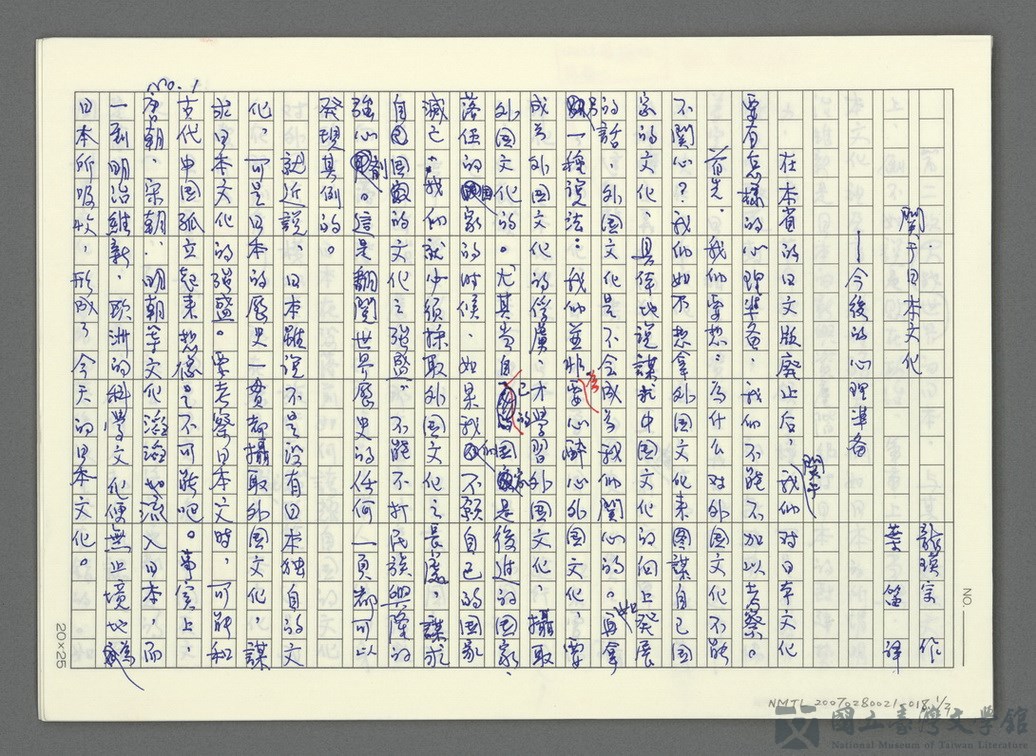 No. 1
關于日本文化
龍瑛宗 作
——今後的心理準备
葉笛 譯
在本省的日文版廢止后，我们對日本文化
關于
要有怎樣的心理準备，我们不能不加以考察。
首先，我们要想：為什么對外國文化不能
不關心？我们如不想拿外國文化来圖謀自己國
家的文化、具体地説謀求中国文化的向上発展
的話，外國文化是不会成為我们関心的。再拿
另一種説法：我们並非要心醉心外國文化，要
成為外国文化的俘虜，才學習外國文化、攝取
外国文化的。尤其当自己的國家是後进的国家、
落伍的國家的时候，如果我们不願自己的國家
滅亡，我们就必須採取外國文化之長處，謀求
自國國家的文化之强盛，不能不打民族興隆的
強心劑。這是翻開世界歷史的任何一頁都可以
発現其例的。
就近説，日本雖説不是没有日本独自的文
化，可是日本的歷史一貫都攝取外國文化，謀
求日本文化的强盛。要考察日本文时，可能和
古代中国孤立起来想像是不可能吧。事实上，
唐朝、宋朝、明朝等文化滔滔地流入日本，而
一到明治維新，歐洲的科學文化便無止境地為
日本所吸收，形成了今天的日本文化。
NO.
20×25
NMTL 20070280021-018 1/7
國立臺灣文學館
National Museum of Taiwan Literature